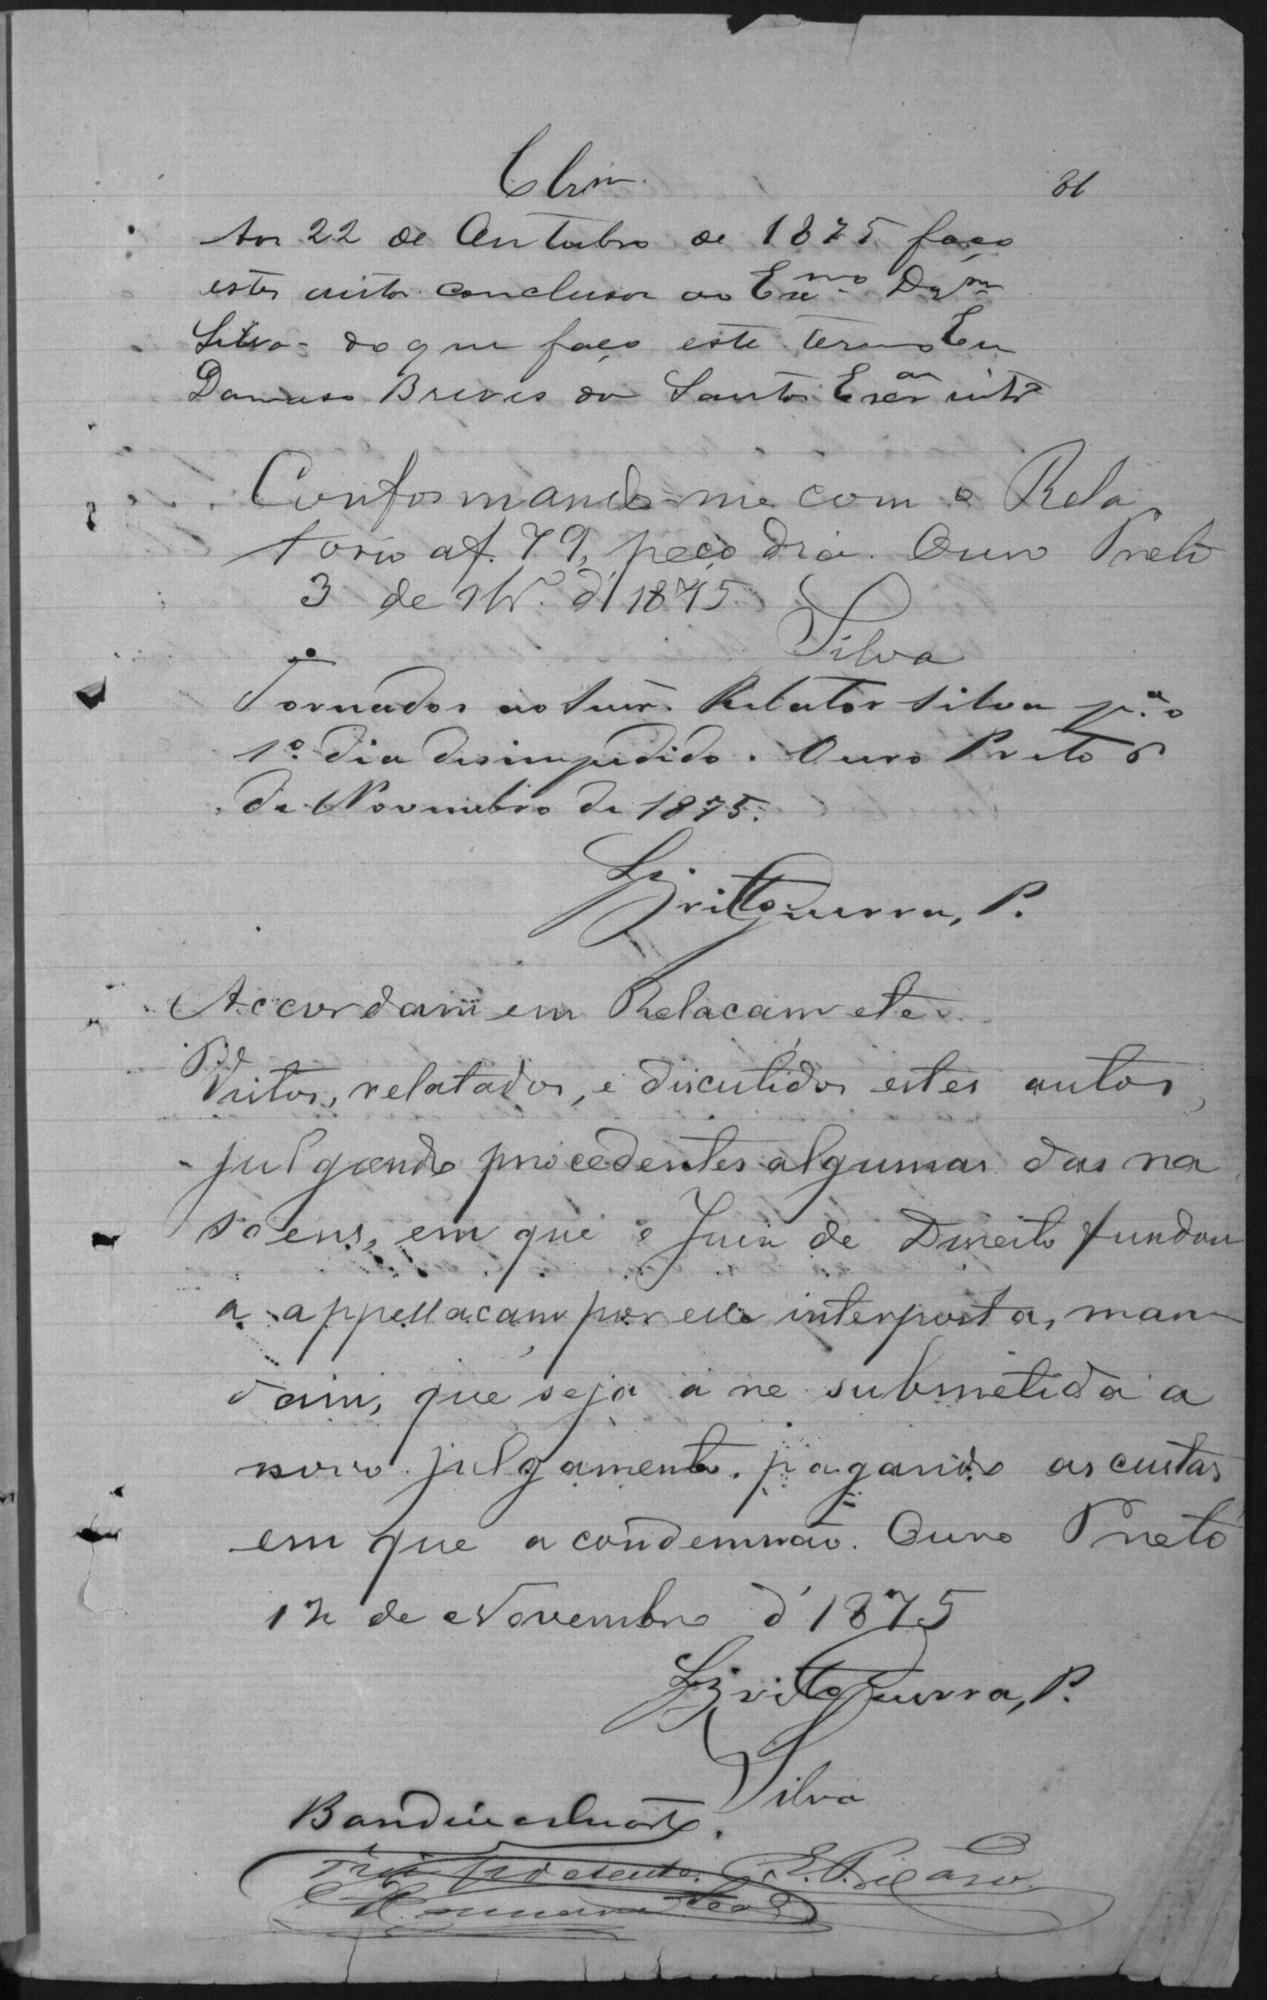 Clsm
81
Aos 22 de Outubro de 1875 faço
estes autos conclusos ao Exmo. Dzor
Silva do que faço este termo Eu
Damaso Breves dos Santos Escram
Conformando-me com o Rela
torio a f. 79, peço dia. Ouro Preto
3 de Nbr.º d'1875
Silva
Tornados ao Snr. Relator Silva pª o
1º dia desimpedido. Ouro Preto
de Novembro de 1875.
Britto Guerra, P.
Accordam em Relacam etc
Vistos, relatados, e discutidos estes autos,
julgando procedentes algumas das ra
soens, em que o Juiz de Direito fundou
a appellacam por elle interposta, man
dam, que seja a re submetida a
novo julgamento, pagando as custas
em que a condemnão. Ouro Preto
12 de Novembro d'1875
Britto Guerra, P.
Silva
Bandeira Duarte.
Fui presente.